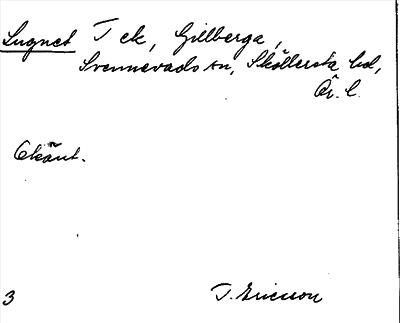 Lugnet T ek, Gillberga,
Svennevads sn, Sköllersta hd,
Ör. l.
Okänt.
3 T. Ericsson